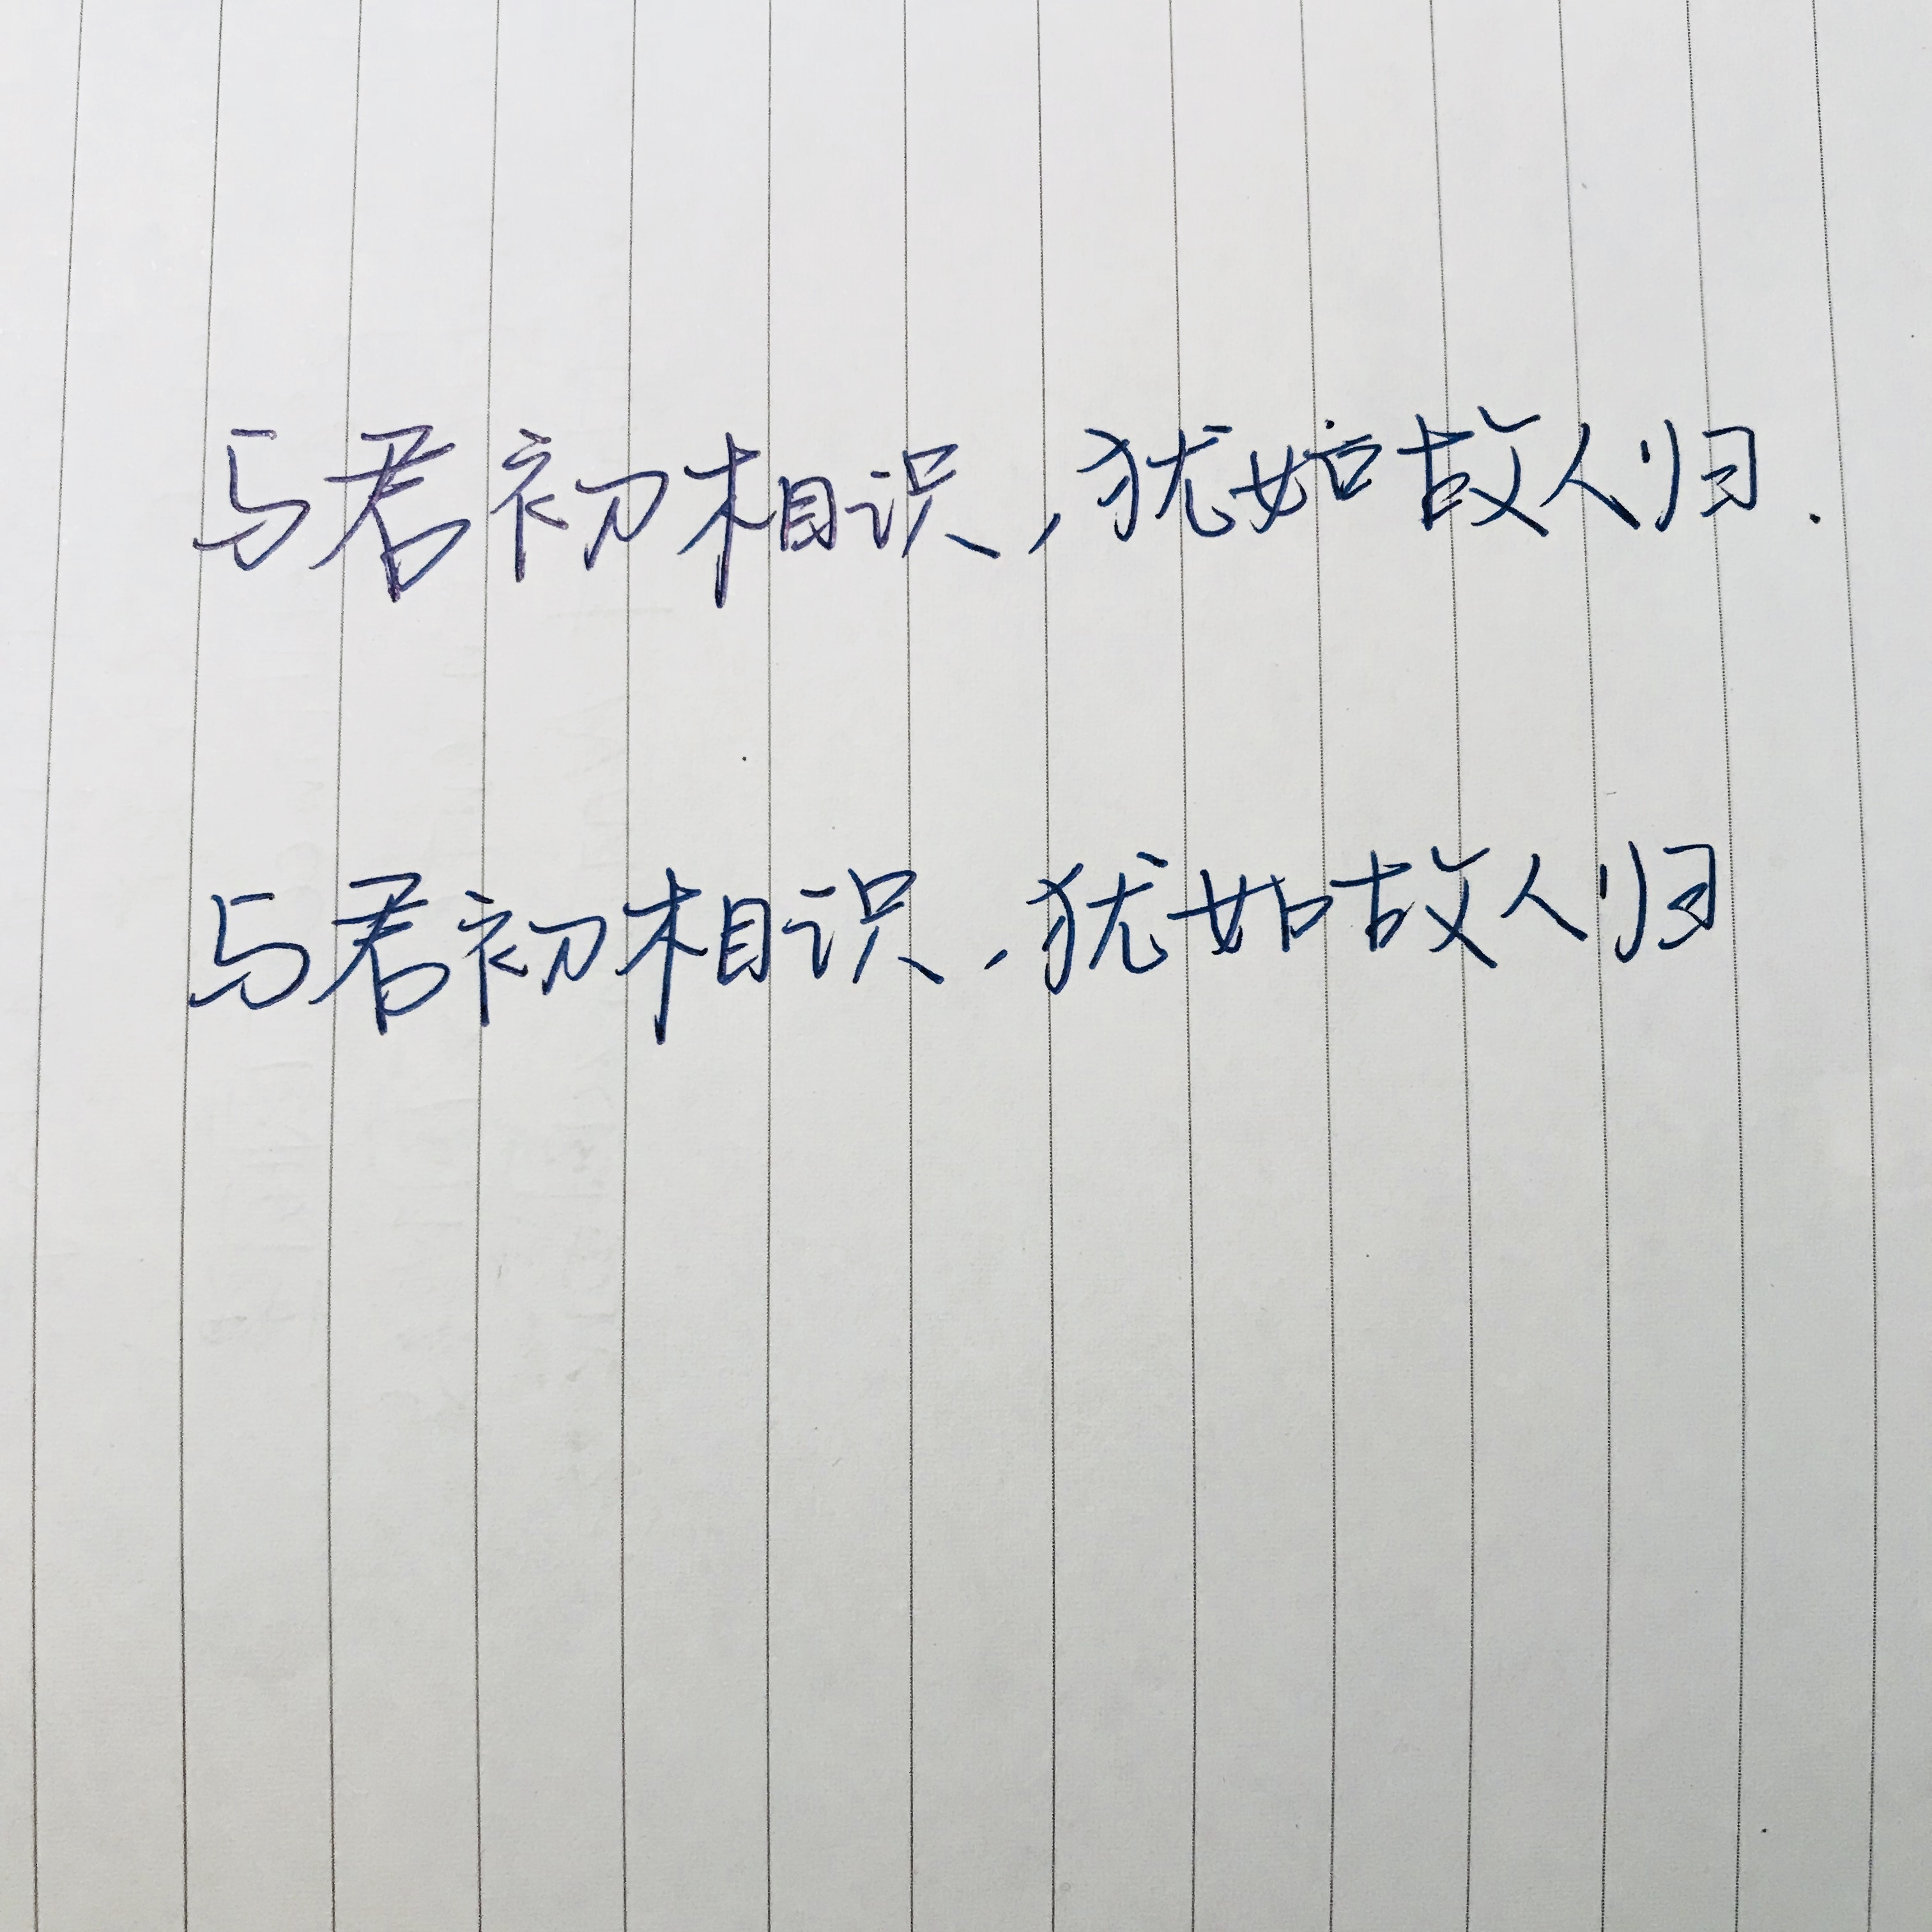 与君初相识，犹如故人归.
与君初相识，犹如故人归